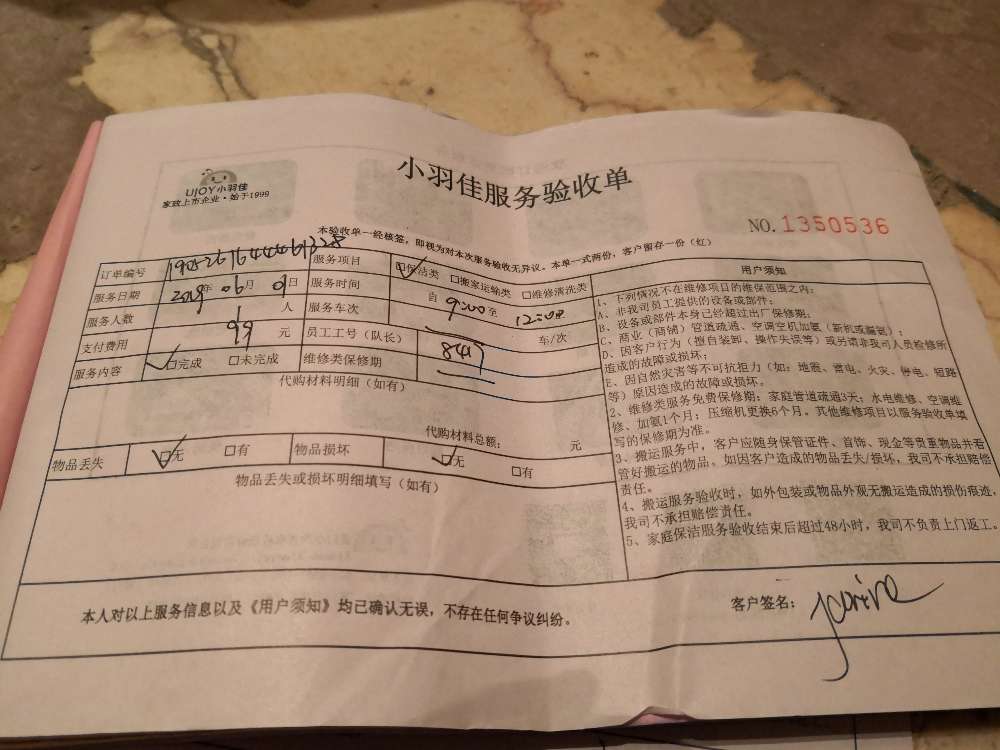 UJOY小羽佳
家政上市企业·始于1999
小羽佳服务验收单
NO.1350536
本验收单一经核签,即视为对本次服务验收无异议。本单一式两份,客户留存一份(红)
订单编号 服务项目 保洁类 搬家运输类 维修清洗类
服务日期 2019年06月01日 服务时间 自9:00至12:00
服务人数 1人 服务车次 车/次
支付费用 99元 员工工号(队长)
服务内容 完成 未完成 维修类保修期
代购材料明细(如有)
代购材料总额: 元
物品丢失 无 有 物品损坏 无 有
物品丢失或损坏明细填写(如有)
用户须知
1、下列情况不在维修项目的维保范围之内:
A、非我司员工提供的设备或部件;
B、设备或部件本身已经超过出厂保修期;
C、商业(商铺)管道疏通、空调空机加氨(新机或漏氨);
D、因客户行为(擅自装卸、操作失误等)或另请非我司人员检修所
造成的故障或损坏;
E、因自然灾害等不可抗拒力(如:地震、雷电、火灾、停电、短路
等)原因造成的故障或损坏。
2、维修类服务免费保修期:家庭管道疏通3天;水电维修、空调维
修、加氨1个月;压缩机更换6个月。其他维修项目以服务验收单填
写的保修期为准。
3、搬运服务中,客户应随身保管证件、首饰、现金等贵重物品并看
管好搬运的物品。如因客户造成的物品丢失/损坏,我司不承担赔偿
责任。
4、搬运服务验收时,如外包装或物品外观无搬运造成的损伤痕迹,
我司不承担赔偿责任。
5、家庭保洁服务验收结束后超过48小时,我司不负责上门返工。
本人对以上服务信息以及《用户须知》均已确认无误,不存在任何争议纠纷。
客户签名: